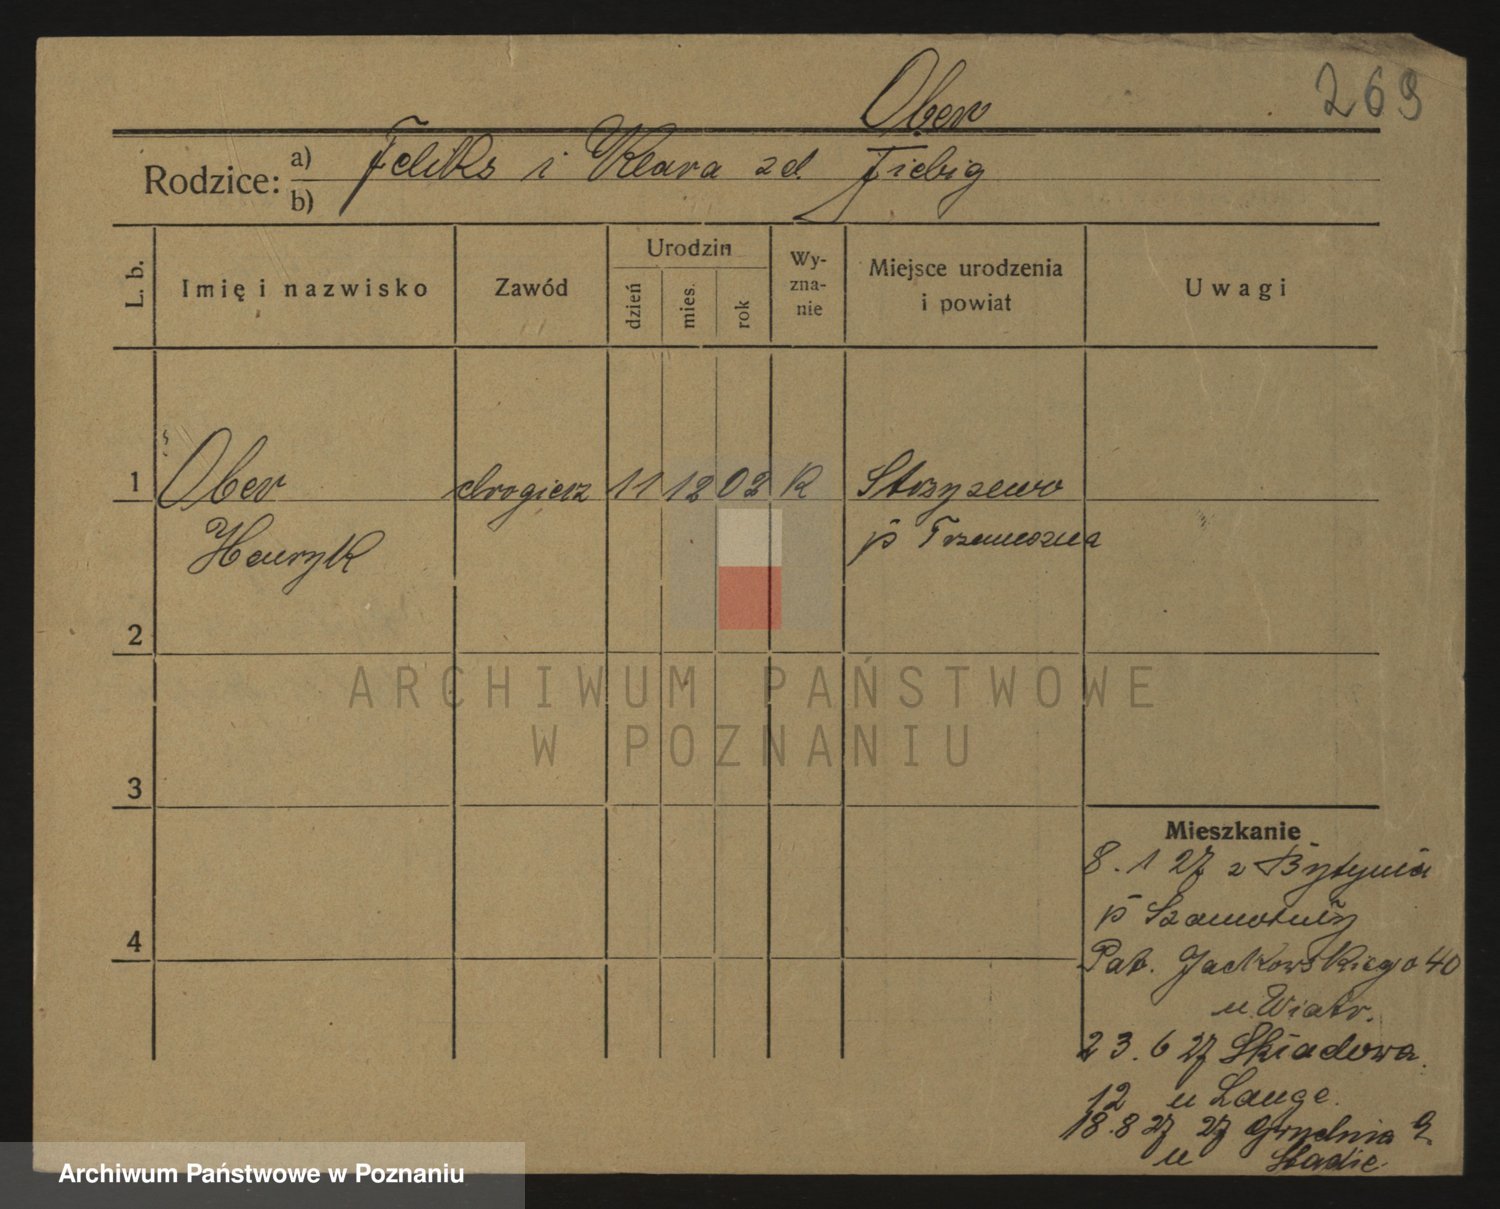 269
Ober
Rodzice: a) Feliks i Klara zd. Fiebig
b)
L. b. Imię i nazwisko Zawód Urodzin dzień mies. rok Wy-zna-nie Miejsce urodzenia i powiat Uwagi
1 Ober drogierz 11 12 02 K Strzyzewo
Henryk p Trzemeszna
2
ARCHIWUM PAŃSTWOWE
W POZNANIU
3
Mieszkanie
8. 1 27 z Bytynia
p Szamotuły
4
Pat. Jackowskiego 40
u Wiatr.
23. 6 27 Składowa
12 u Lange.
18. 8 27 27 Grudnia 9
u
Archiwum Państwowe w Poznaniu